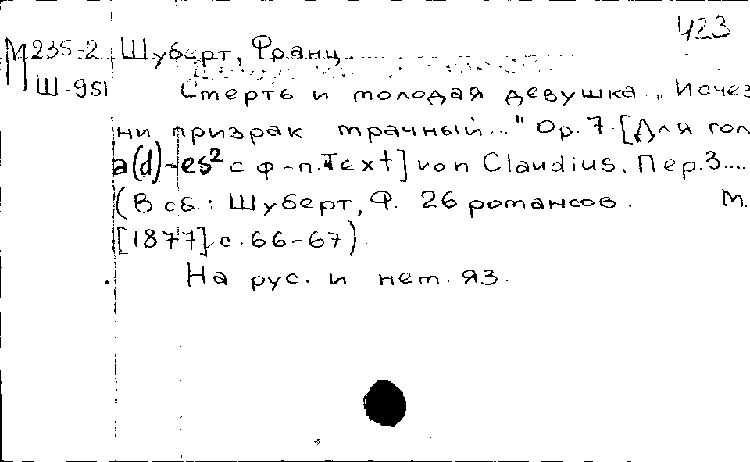 423
М 235-2 Шуберт, Франц
Ш-951 Смерть и молодая девушка. „Исчез
ни призрак мрачный..." Op. 7. [Для гол
a(d)-es² с ф-п. Text] von Claudius. Пер. З....
(В сб.: Шуберт, Ф. 26 романсов. М.
[1877] с. 66-67).
На рус. и нем. яз.